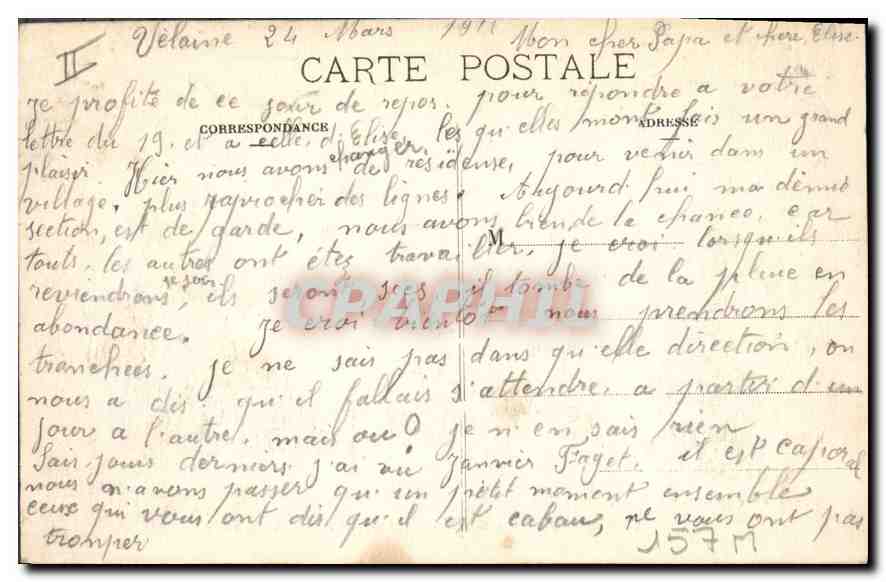 II Vélaine 24 Mars 191
Mon cher Papa et chere Elise.
CARTE POSTALE
je profite de ce jour de repos. pour répondre a votre
CORRESPONDANCE
ADRESSE
lettre du 19. et a celle d'Elise, les qu'elles mont fais un grand
plaisir. Hier nous avons changer de résidense, pour venir dans un
village. plus raprocher des lignes. Aujourd hui ma démie
section, est de garde, nous avons bien de la chance, car
M
touts, les autres ont étez travailler, je croi lorsqu'ils
reviendrons, ce soir ils seron sces il tombe de la pluie en
abondance. Je croi vientôt nous prendrons les
tranchées. je ne sais pas dans qu'elle direction, on
nous a dis qu'il fallais s'attendre, a partir d'un
jour a l'autre, mais ou? je n'en sais rien
Sais jours derniers j'ai vu Janvier Faget. il est caporal
nous n'avons passer qu'un petit moment ensemble
ceux qui vous ont dis qu'il est cabau, ne vous ont pas
tromper
157M
CPAPHIL